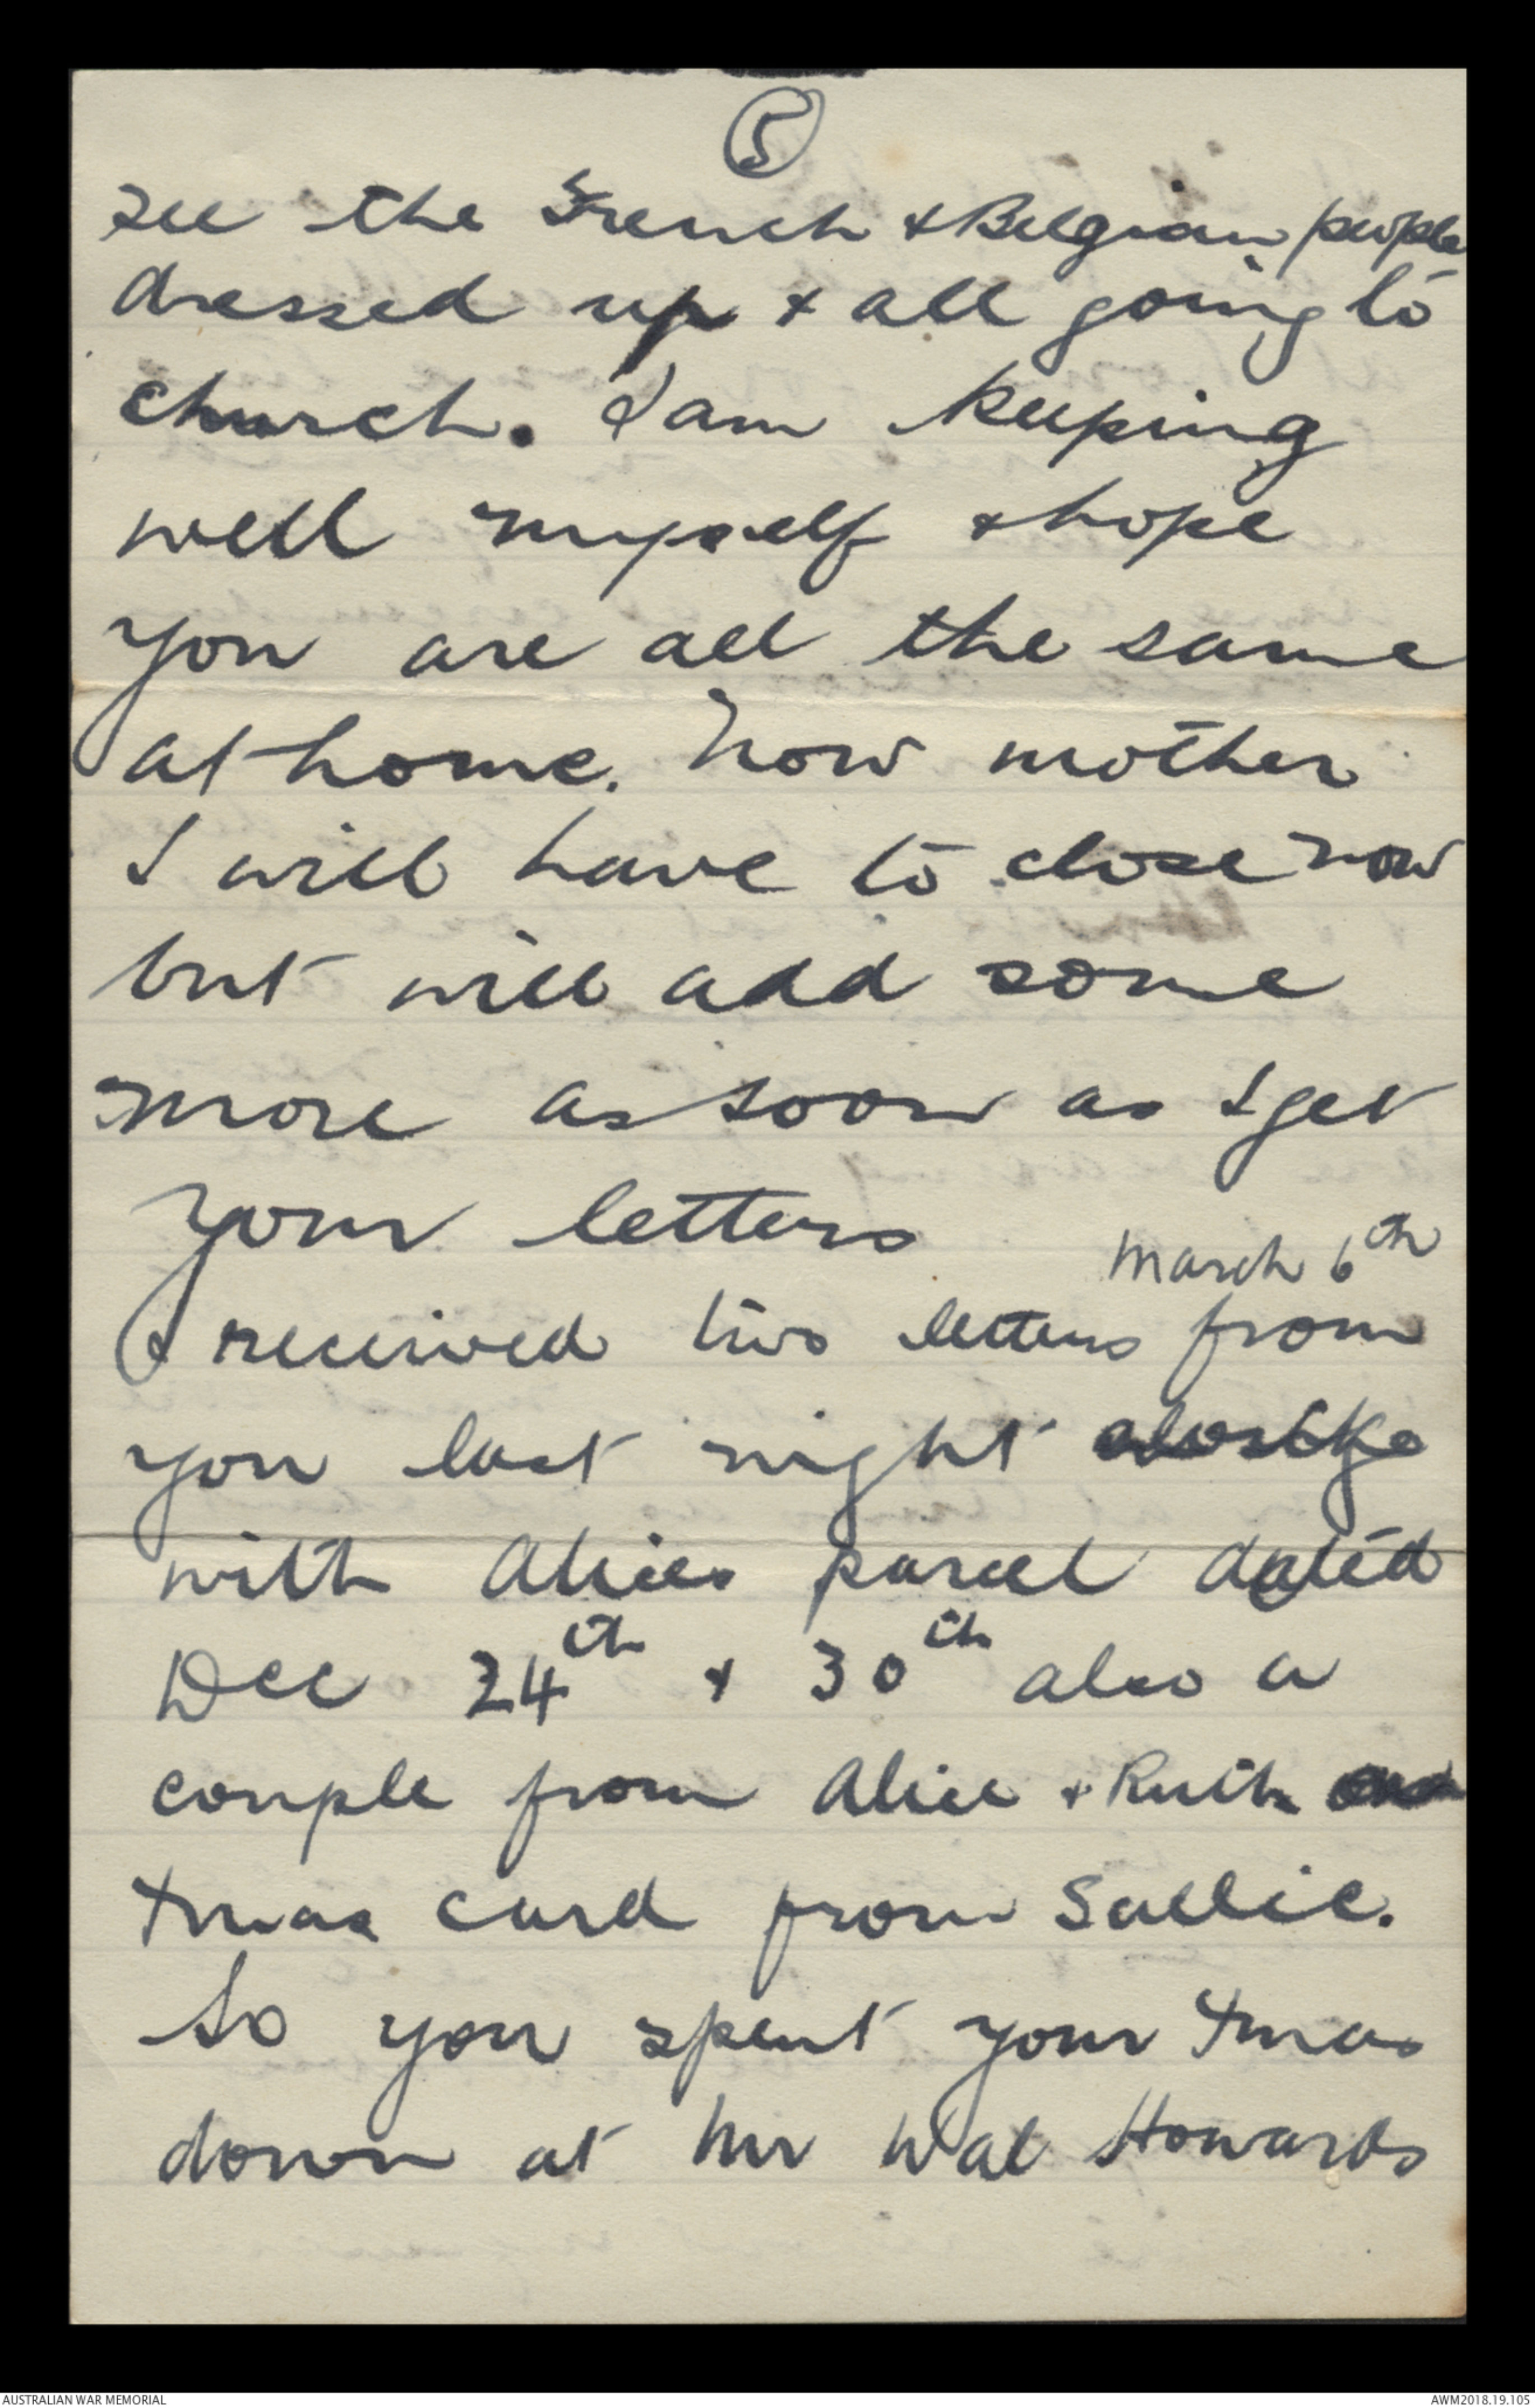 5
see the French & Belgian people
dressed up & all going to
church. I am keeping
well myself & hope
you are all the same
at home. Now mother
I will have to close now
but will add some
more as soon as I get
your letters
March 6th
I received two letters from
you last night
with Alices parcel dated
Dec 24th & 30th also a
couple from Alice & Ruth
Xmas card from Sallie.
So you spent your Xmas
down at Mr Wal Howards
AUSTRALIAN WAR MEMORIAL
AWM2018.19.105